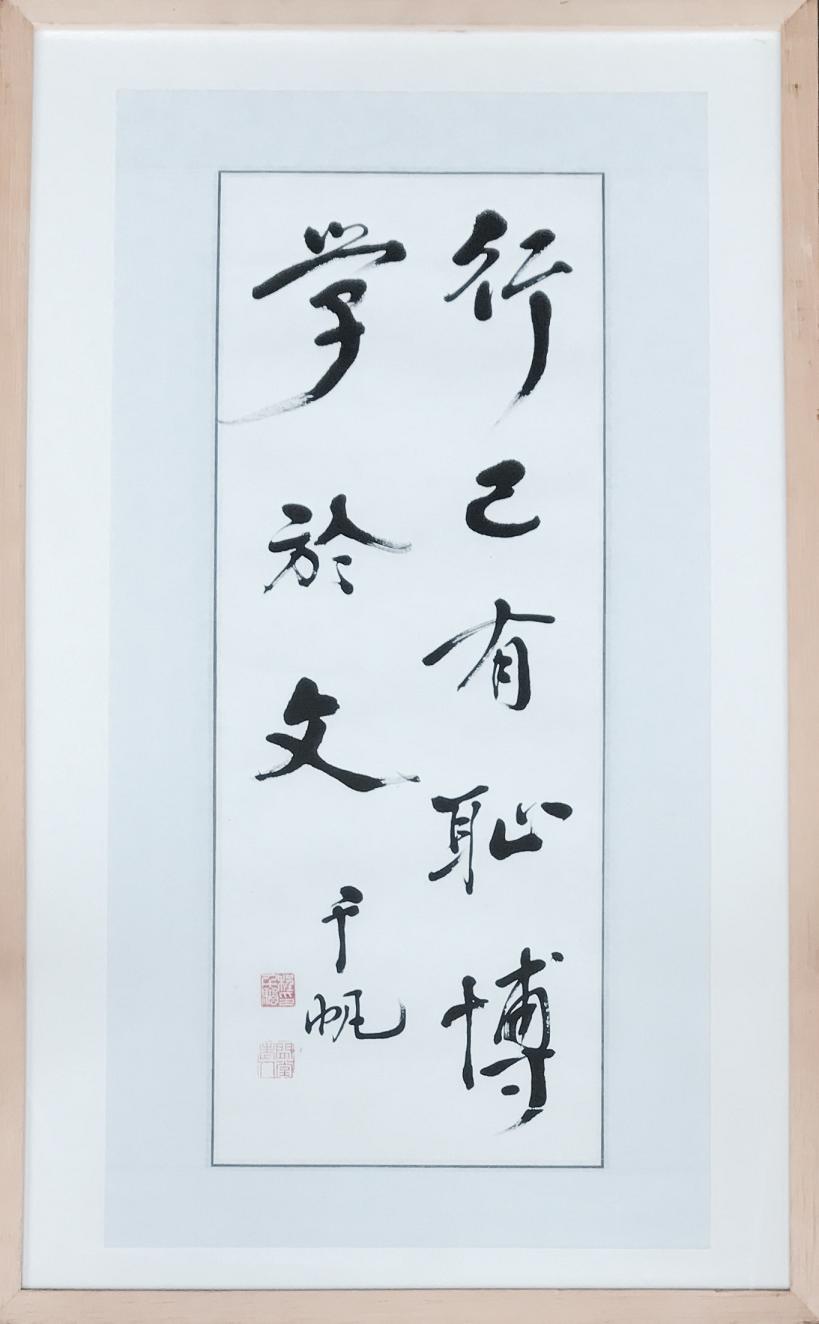 行己有恥博
学於文
千帆